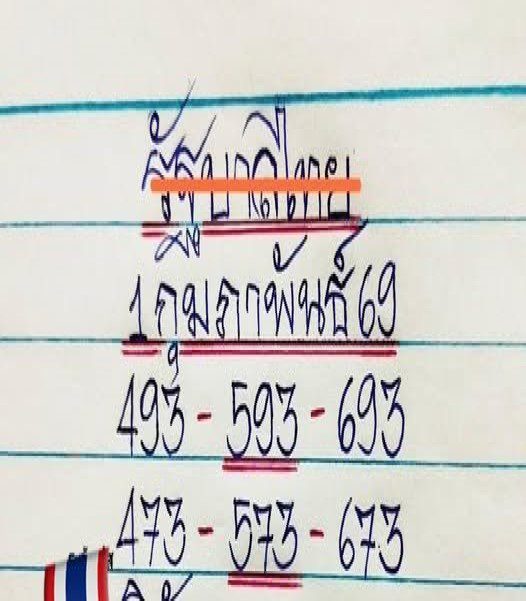 รัฐบาลไทย
1 กุมภาพันธ์ 69
493 - 593 - 693
473 - 573 - 673